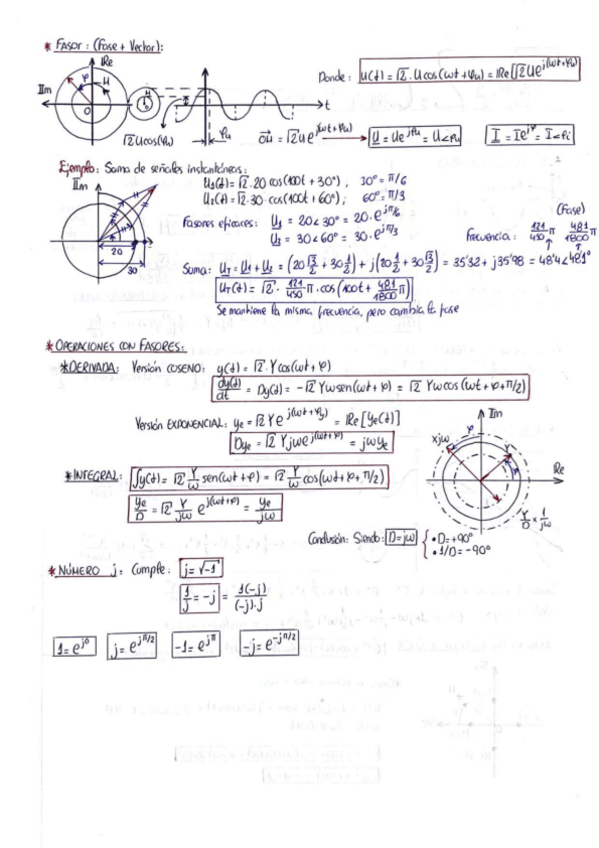 * FASOR: (Fase + Vector):
Re
Im
φ
U
O
t
√2 U cos(φu)
φu
Donde: u(t) = √2 · U cos(ωt + φu) = Re[√2 U e^j(ωt+φu)]
ou = √2 U e^j(ωt+φu) → U = U e^jφu = U∠φu
I = I e^jφi = I∠φi
Ejemplo: Suma de señales instantáneas:
Im
20
30
U1(t) = √2 · 20 cos(100t + 30°) ; 30° = π/6
U2(t) = √2 · 30 · cos(100t + 60°) ; 60° = π/3
Fasores eficaces: U1 = 20∠30° = 20 · e^jπ/6
U2 = 30∠60° = 30 · e^jπ/3
(Fase)
Frecuencia: 121/450 π 481/1800 π
Suma: UT = U1 + U2 = (20 √3/2 + 30 1/2) + j(20 1/2 + 30 √3/2) = 35'32 + j35'98 = 48'4∠48'1°
UT(t) = √2 · 121/450 π · cos(100t + 481/1800 π)
Se mantiene la misma frecuencia, pero cambia la fase
* OPERACIONES CON FASORES:
* DERIVADA: Versión COSENO: y(t) = √2 · Y cos(ωt + φ)
dy(t)/dt = Dy(t) = -√2 Yω sen(ωt + φ) = √2 Yω cos(ωt + φ + π/2)
Versión EXPONENCIAL: ye = √2 Y e^j(ωt+φy) = Re[ye(t)]
Dye = √2 Y jω e^j(ωt+φ) = jω ye
* INTEGRAL: ∫y(t) = √2 Y/ω sen(ωt + φ) = √2 Y/ω cos(ωt + φ + π/2)
ye/D = √2 Y/jω e^j(ωt+φ) = ye/jω
Im
xjω
φ
Y
Re
Y/D x 1/jω
Conclusión: Siendo: D = jω { • D = +90°
• 1/D = -90°
* NÚMERO j: Cumple: j = √-1
1/j = -j = 1(-j)/(-j)·j
1 = e^j0
j = e^jπ/2
-1 = e^jπ
-j = e^-jπ/2